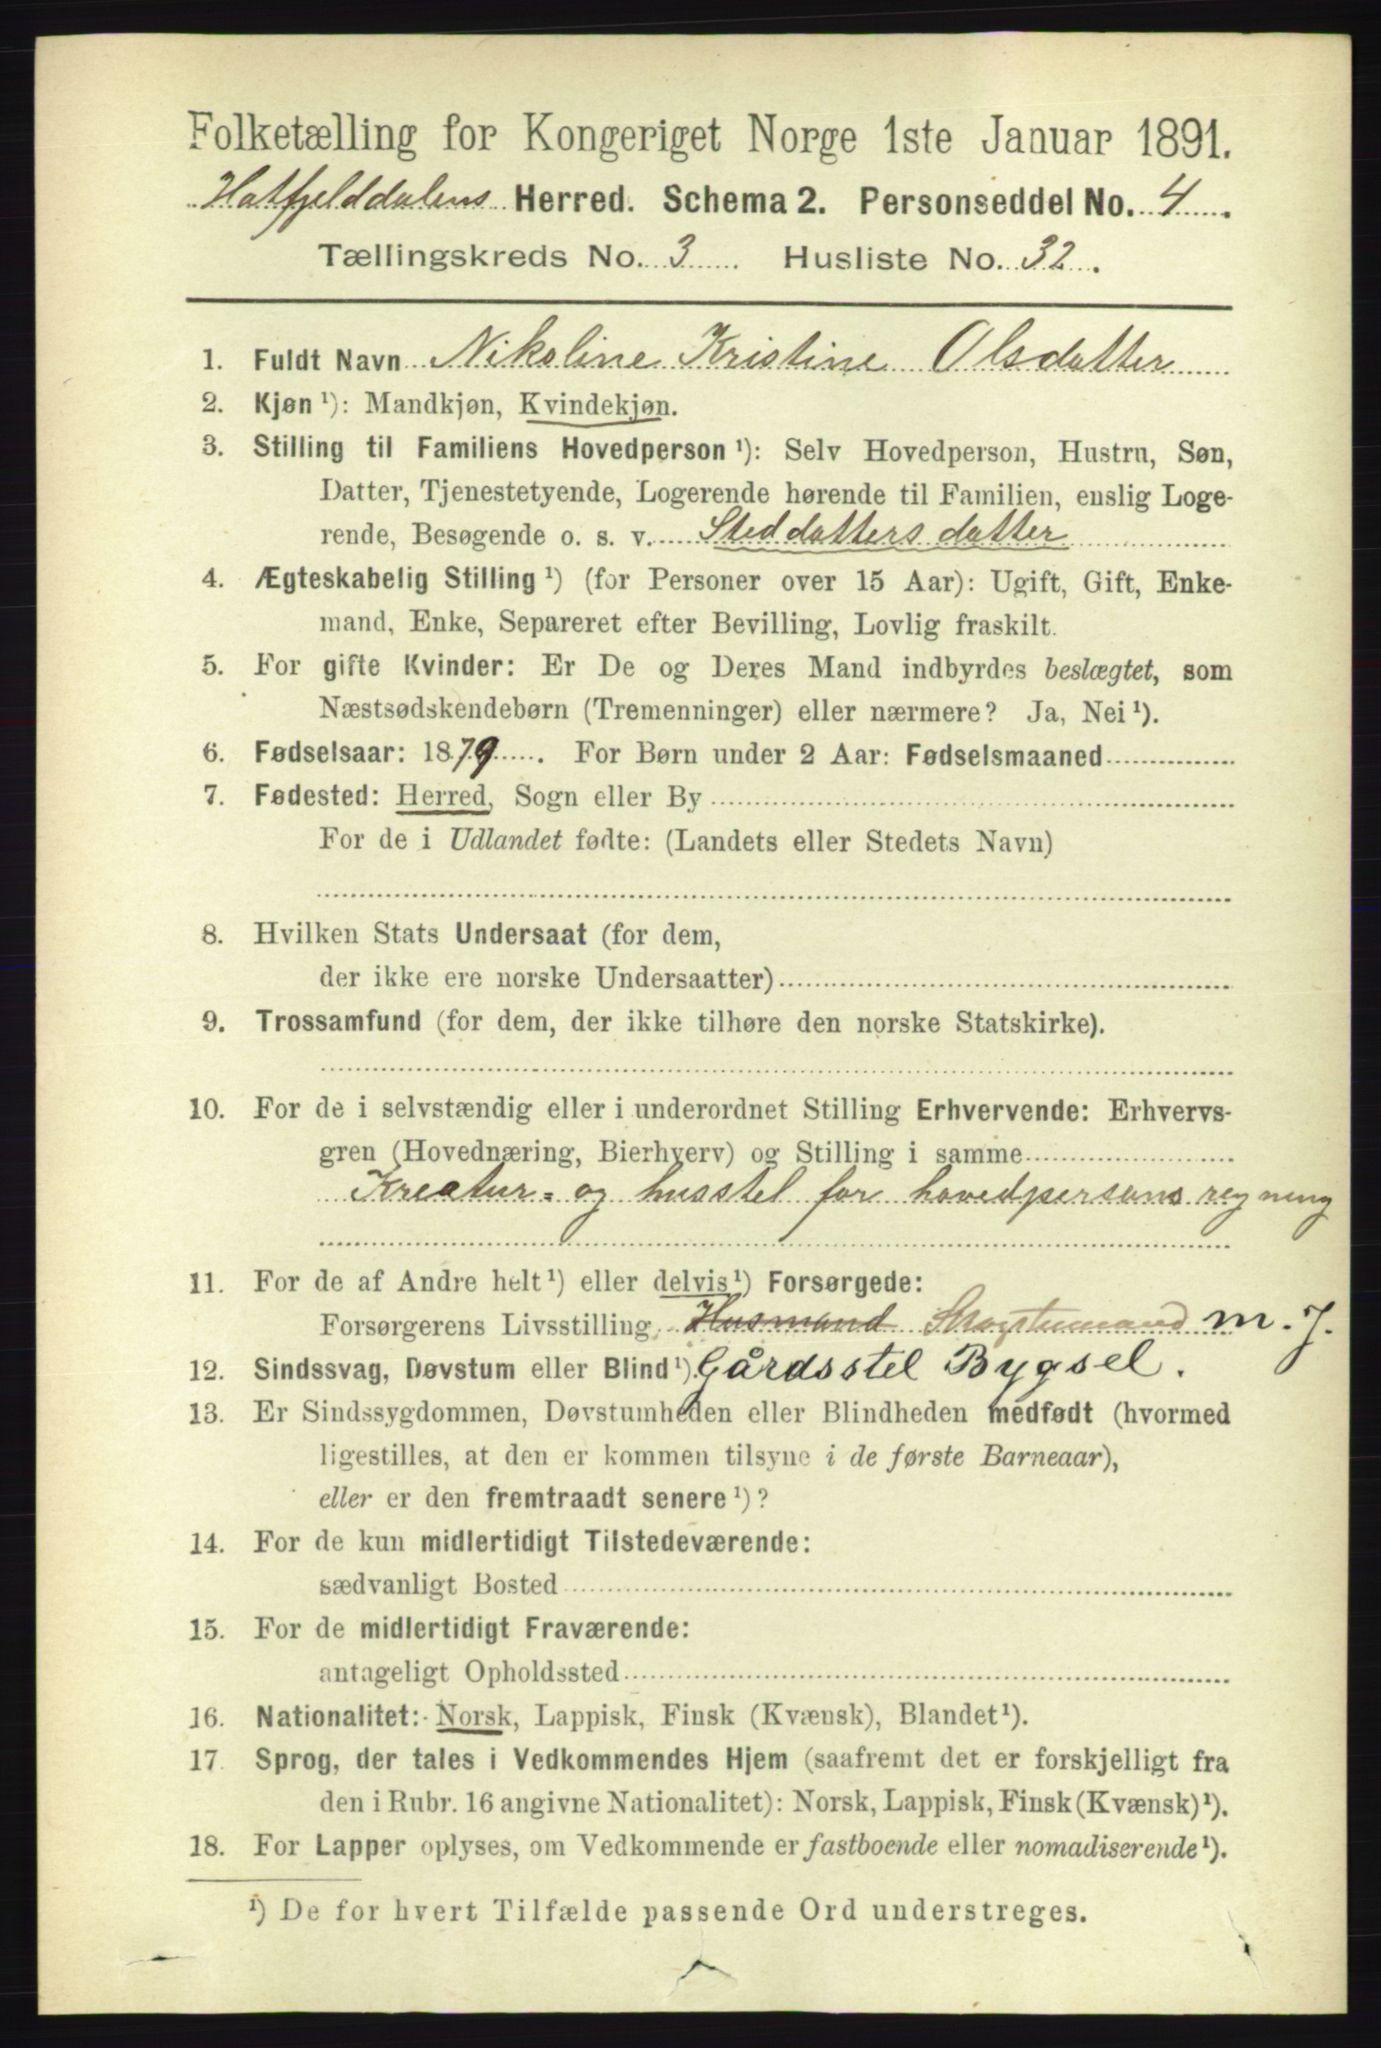 Folketælling for Kongeriget Norge 1ste Januar 1891.
Hatfjelddalens Herred. Schema 2. Personseddel No. 4.
Tællingskreds No. 3 Husliste No. 32.
1. Fuldt Navn Nikoline Kristine Olsdatter
2. Kjøn ¹): Mandkjøn, Kvindekjøn.
3. Stilling til Familiens Hovedperson ¹): Selv Hovedperson, Hustru, Søn,
Datter, Tjenestetyende, Logerende hørende til Familien, enslig Loge-
rende, Besøgende o. s. v. Steddatters datter
4. Ægteskabelig Stilling ¹) (for Personer over 15 Aar): Ugift, Gift, Enke-
mand, Enke, Separeret efter Bevilling, Lovlig fraskilt.
5. For gifte Kvinder: Er De og Deres Mand indbyrdes beslægtet, som
Næstsødskendebørn (Tremenninger) eller nærmere? Ja, Nei ¹).
6. Fødselsaar: 1879. For Børn under 2 Aar: Fødselsmaaned
7. Fødested: Herred, Sogn eller By
For de i Udlandet fødte: (Landets eller Stedets Navn)
8. Hvilken Stats Undersaat (for dem,
der ikke ere norske Undersaatter)
9. Trossamfund (for dem, der ikke tilhøre den norske Statskirke).
10. For de i selvstændig eller i underordnet Stilling Erhvervende: Erhvervs-
gren (Hovednæring, Bierhverv) og Stilling i samme
Kreatur- og husstel for hovedpersons regning
11. For de af Andre helt ¹) eller delvis ¹) Forsørgede:
Forsørgerens Livsstilling, Husmand m. J.
12. Sindssvag, Døvstum eller Blind ¹). Gårdsstel Bygsel.
13. Er Sindssygdommen, Døvstumheden eller Blindheden medfødt (hvormed
ligestilles, at den er kommen tilsyne i de første Barneaar),
eller er den fremtraadt senere ¹)?
14. For de kun midlertidigt Tilstedeværende:
sædvanligt Bosted
15. For de midlertidigt Fraværende:
antageligt Opholdssted
16. Nationalitet: Norsk, Lappisk, Finsk (Kvænsk), Blandet ¹).
17. Sprog, der tales i Vedkommendes Hjem (saafremt det er forskjelligt fra
den i Rubr. 16 angivne Nationalitet): Norsk, Lappisk, Finsk (Kvænsk) ¹).
18. For Lapper oplyses, om Vedkommende er fastboende eller nomadiserende ¹).
¹) De for hvert Tilfælde passende Ord understreges.